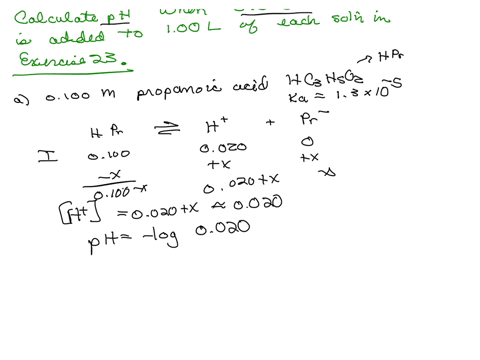 Calculate pH when
is added to 1.00 L of each soln in
Exercise 23.
→ HPr
a) 0.100 m propanoic acid HC3H5O2
Ka = 1.3 × 10^-5
HPr ⇌ H+ + Pr-
I 0.100 0.020 0
-x +x +x
0.100-x 0.020+x x
[H+] = 0.020+x ≈ 0.020
pH = -log 0.020